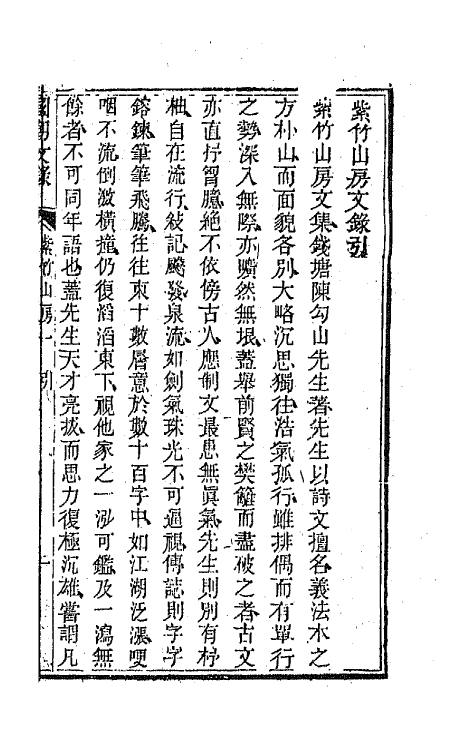 紫竹山房文錄引
紫竹山房文集錢塘陳勾山先生著先生以詩文擅名義法本之
方朴山而面貌各別大略沉思獨往浩氣孤行雖排偶而有單行
之勢深入無際亦曠然無垠蓋舉前賢之樊籬而盡破之者古文
亦直抒胷臆絶不依傍古人應制文最患無眞氣先生則別有杼
柚自在流行敍記飈發泉流如劍氣珠光不可逼視傳誌則字字
鎔鍊筆筆飛騰往往束十數層意於數十百字中如江湖泛漲哽
咽不流倒激橫撞仍復滔滔東下視他家之一泓可鑑及一瀉無
餘者不可同年語也蓋先生天才亮拔而思力復極沉雄嘗謂凡
國朝文錄 紫竹山房一 引 一